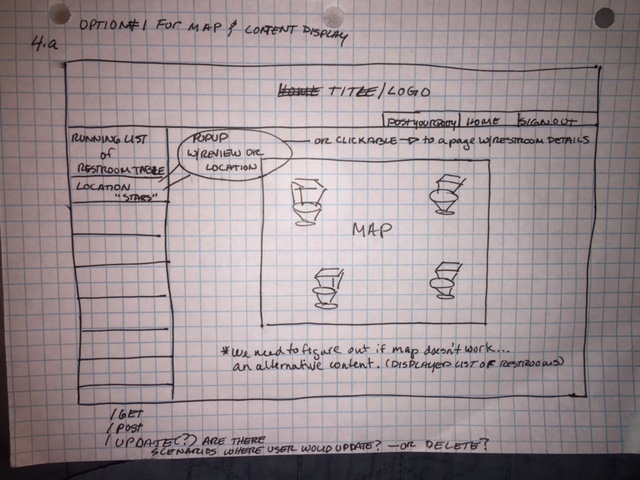 OPTION #1 FOR MAP & CONTENT DISPLAY
4.a
HOME TITLE/LOGO
POST YOUR POTTY HOME SIGN OUT
RUNNING LIST
of
RESTROOM TABLE
LOCATION
"STARS"
POPUP
W/REVIEW OR
LOCATION
OR CLICKABLE → to a page w/RESTROOM DETAILS
MAP
*we need to figure out if map doesn't work...
an alternative content. (DISPLAYED LIST OF RESTROOMS)
/GET
/POST
/UPDATE(?) ARE THERE
SCENARIOS WHERE USER WOULD UPDATE? - OR DELETE?